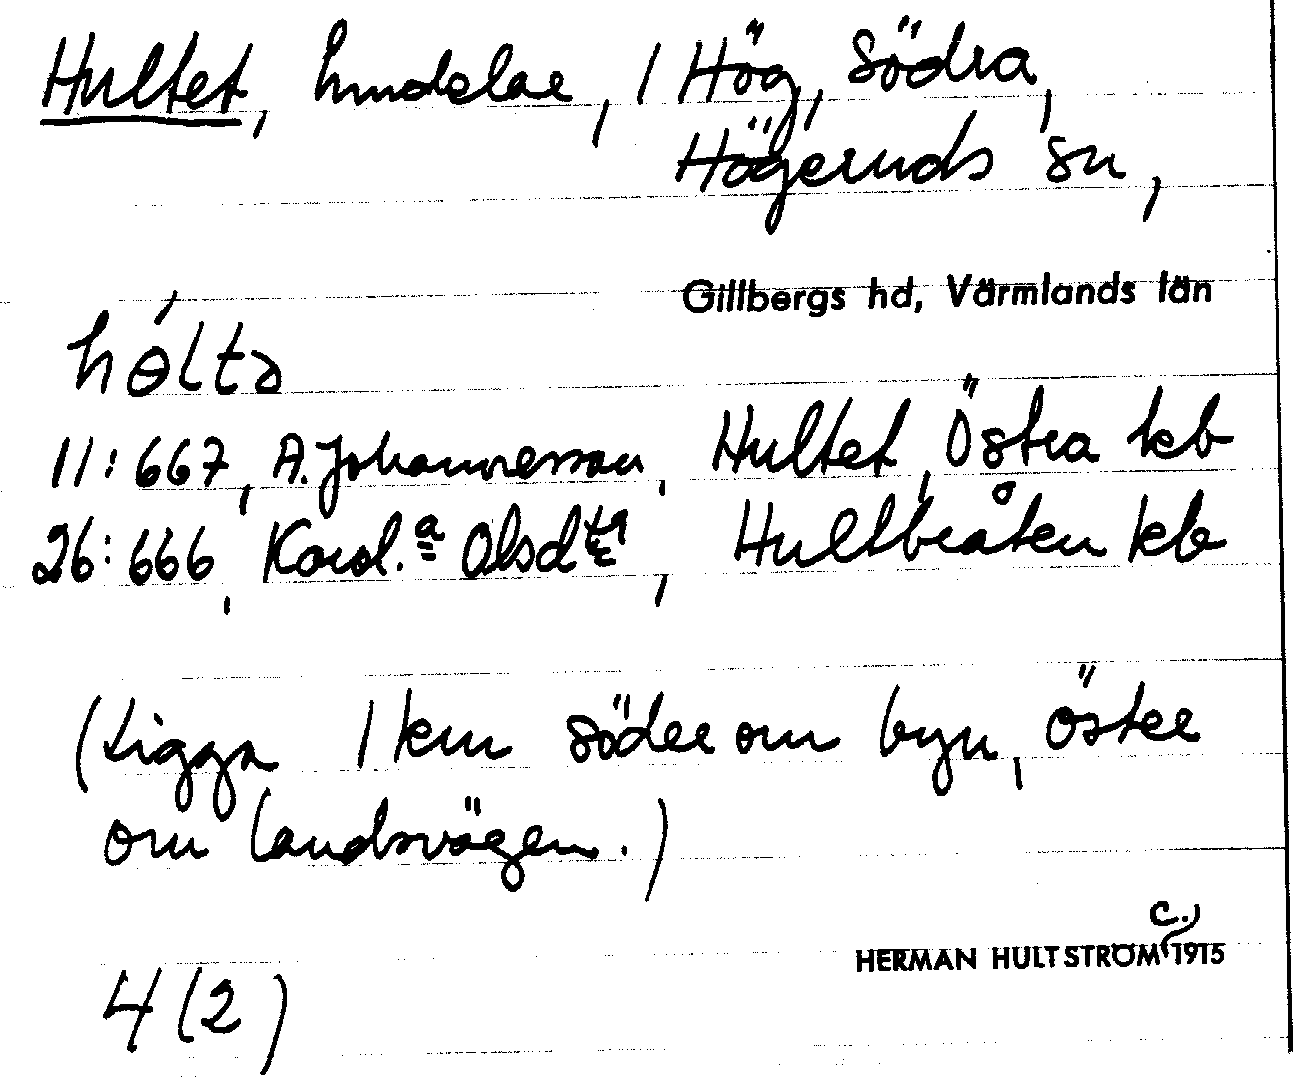 Hultet, hmdelar, / Hög, Södra,
Högeruds sn,
Gillbergs hd, Värmlands län
hɵ́lta
11:667, A. Johannesson, Hultet, Östra kb
26:666, Karol.a Olsdta, Hultbråten kb
(Ligga 1 km söder om byn, öster
om landsvägen.)
HERMAN HULTSTRÖM c. 1915
4 (2)